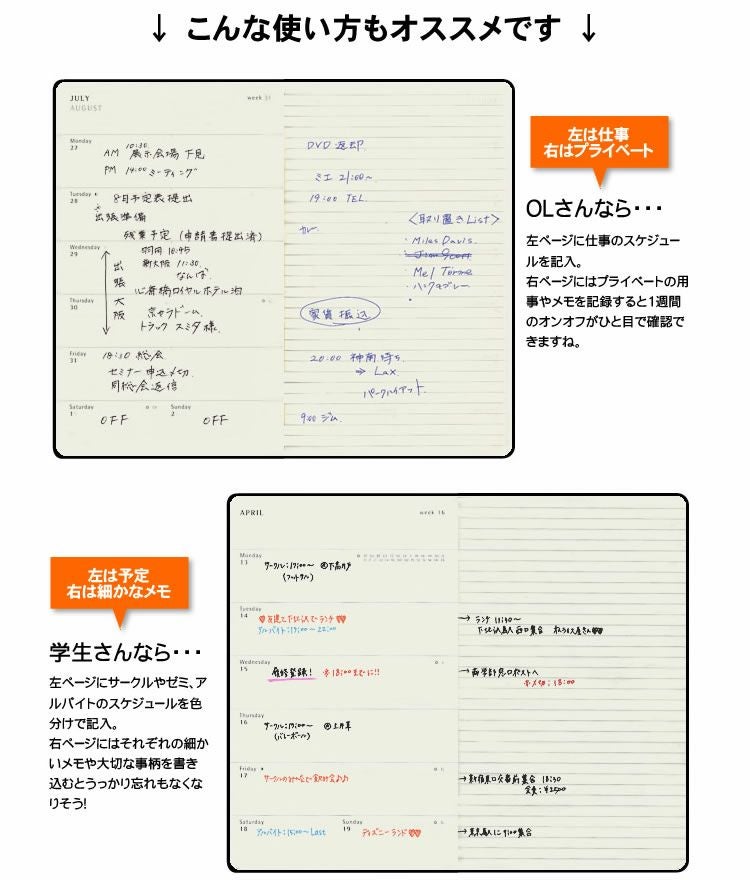 ↓ こんな使い方もオススメです ↓
左は仕事
右はプライベート
OLさんなら・・・
左ページに仕事のスケジュー
ルを記入。
右ページにはプライベートの用
事やメモを記録すると1週間
のオンオフがひと目で確認で
きますね。
JULY
AUGUST
week 31
Monday
27
10:30
AM 展示会場 下見
PM 14:00 ミーティング
Tuesday
28
8月予定表提出
出張準備
残業予定 (申請書提出済)
Wednesday
29
羽田 10:45
新大阪 11:30
なんば
心斎橋ロイヤルホテル泊
出張
大阪
Thursday
30
京セラドーム
トラック スミダ様
Friday
31
18:30 総会
セミナー申込〆切
同総会返信
Saturday
1
OFF
Sunday
2
OFF
DVD 返却
ミエ 21:00~
19:00 TEL
<取り置きList>
・Miles Davis
・Mel Torme
家賃振込
20:00 神南待ち
⇒ Lax
パークハイアット
9:00 ジム
左は予定
右は細かなメモ
学生さんなら・・・
左ページにサークルやゼミ、ア
ルバイトのスケジュールを色
分けで記入。
右ページにはそれぞれの細か
いメモや大切な事柄を書き
込むとうっかり忘れもなくな
りそう!
APRIL
week 16
Monday
13
サークル:17:00~ @下高井戸
(フットサル)
Tuesday
14
友達と下北沢でランチ
アルバイト:17:00~22:00
→ ランチ 11:30~
下北沢駅西口集合
Wednesday
15
履修登録! ※18:00までに!!
→ 南学部窓口ポストへ
※〆切:18:00
Thursday
16
サークル:17:00~ @上井草
(バレーボール)
Friday
17
サークルのみんなで飲み会♪♪
→ 新宿東口交番前集合 18:30
会費:¥2500
Saturday
18
アルバイト:15:00~Last
Sunday
19
ディズニーランド
→ 東京駅に9:00集合